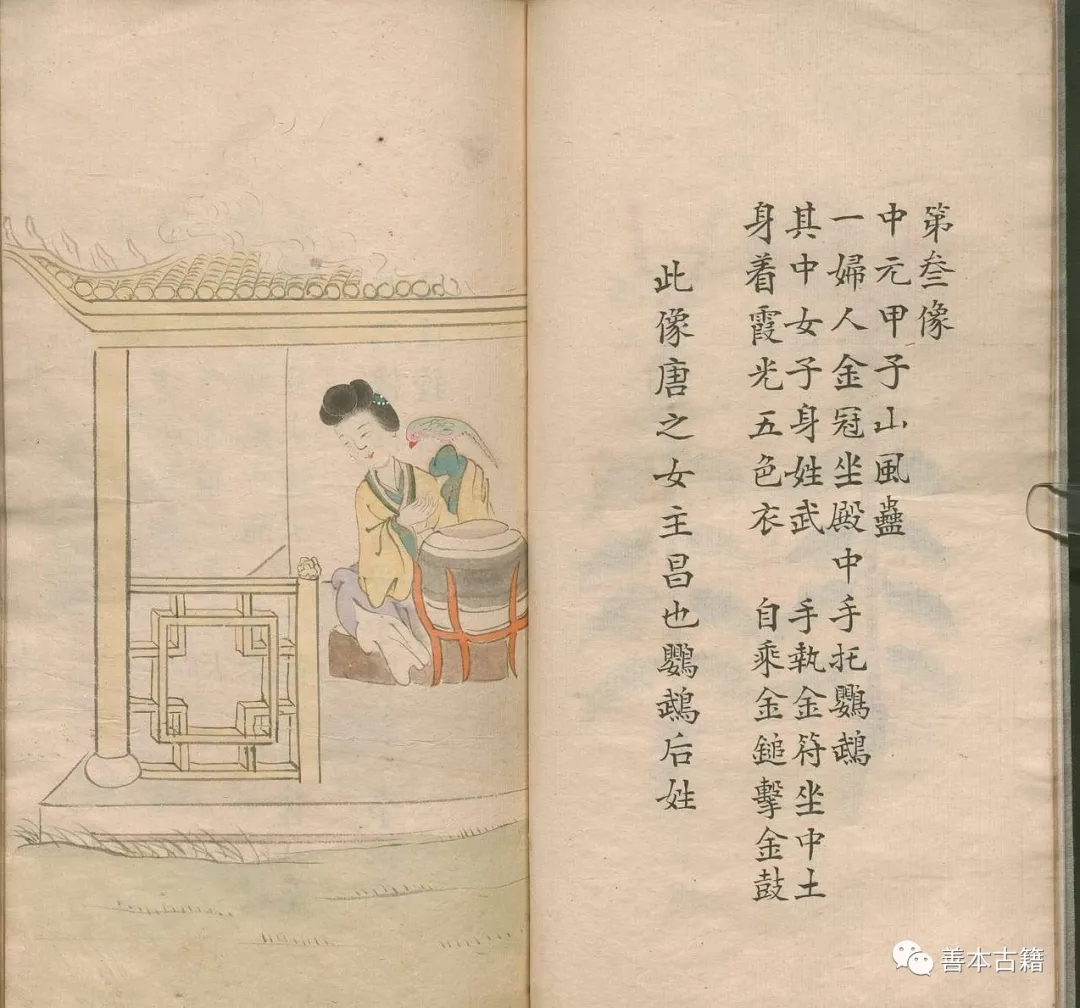 第叁像
中元甲子山風蠱
一婦人金冠坐殿中手托鸚鵡
其中女子身姓武　手執金符坐中土
身着霞光五色衣　自乘金鎚擊金鼓
此像唐之女主昌也鸚鵡后姓
善本古籍